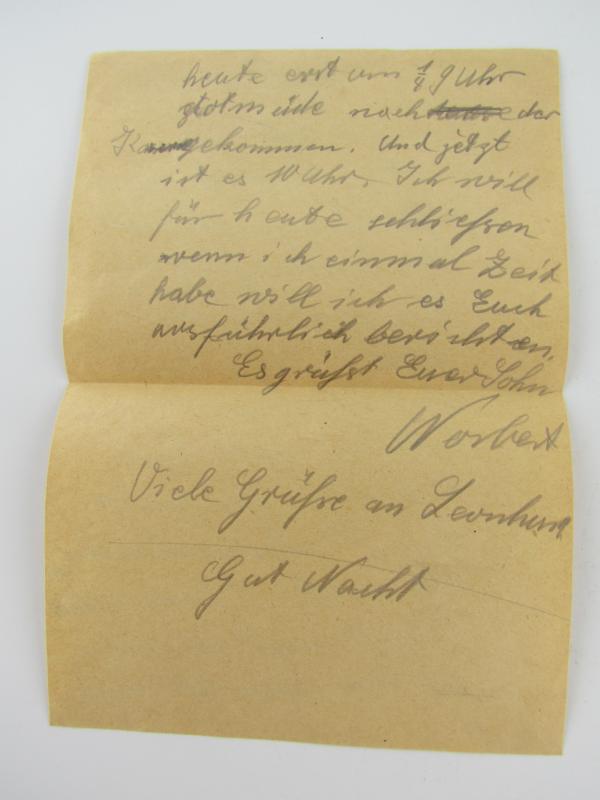 heute erst um 1/4 9 Uhr
totmüde nach der
gekommen. Und jetzt
ist es 10 Uhr. Ich will
für heute schliessen
wenn ich einmal Zeit
habe will ich es Euch
ausführlich berichten.
Es grüßt Euer Sohn
Norbert
Viele Grüße an Leonhard
Gut Nacht